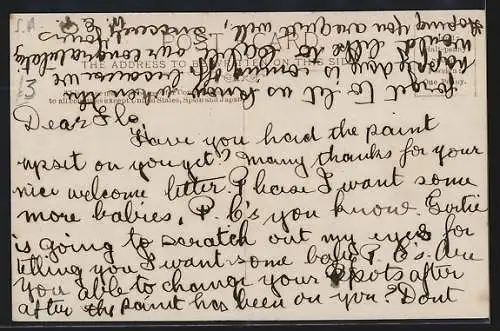 Dear Flo
Have you had the paint
upset on you yet? Many thanks for your
nice welcome letter. Please I want some
more babies, P. C's you know. Gertie
is going to scratch out my eyes for
telling you I want some baby P. C's. Are
you able to change your spots after
after the paint has been on you? Dont
forget to let us know when the
happy day is coming off because we
would like to our congratulate
hoping you are quite well,
sincerely yours
POST CARD
THE ADDRESS TO BE WRITTEN ON THIS SIDE
to all except United States, Spain and Japan
Half-penny
One Penny.
13